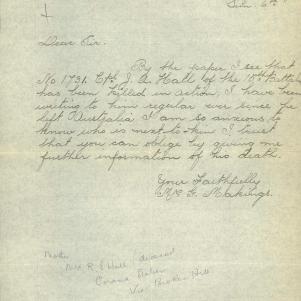 6th
Dear Sir.
By the paper I see that
No 1731. Cpl J. A. Hall of the 15th Battalion
has been killed in action, I have been
writing to him regular ever since he
left Australia. I am so anxious to
know who is next to kin I trust
that you can oblige by giving me
further information of his death.
Your Faithfully
G. Makings.
Mother
Mrs R. S Hall
Corona Station
Via Broken Hill